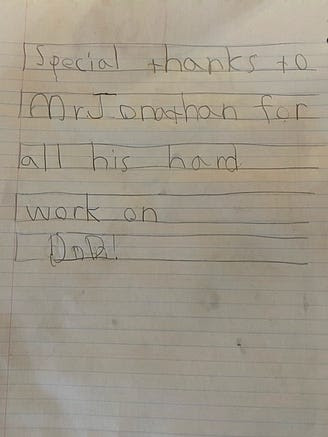 Special thanks to
Mr Jonathan for
all his hard
work on
DnD!